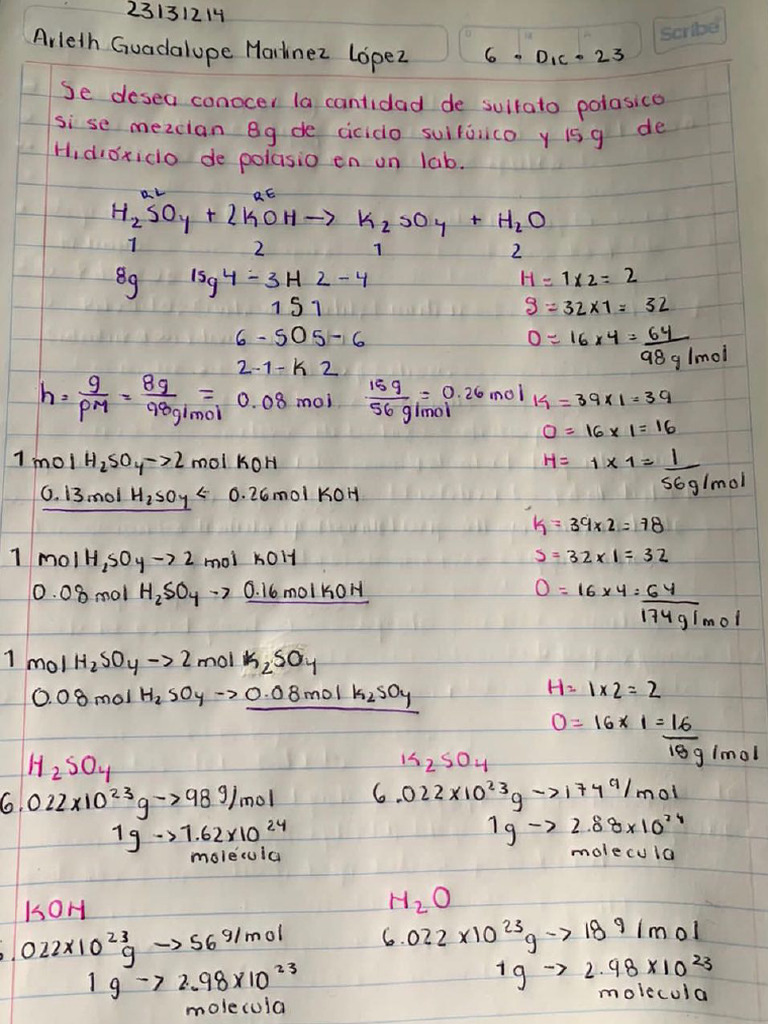 23131214
Arleth Guadalupe Martinez López
6 - Dic - 23
Scribe
Se desea conocer la cantidad de sulfato potasico
si se mezclan 8g de ácido sulfúrico y 15g de
Hidróxido de potasio en un lab.
R.L R.E
H₂SO₄ + 2KOH -> K₂SO₄ + H₂O
1 2 1 2
8g 15g 4-3H 2-4
1 S 1
6-5O5-6
2-1-K 2
H = 1x2 = 2
S = 32x1 = 32
O = 16x4 = 64
98 g/mol
n = g/PM = 8g/98g/mol = 0.08 mol 15g/56 g/mol = 0.26 mol
K = 39x1 = 39
O = 16x1 = 16
H = 1x1 = 1
56g/mol
1 mol H₂SO₄ -> 2 mol KOH
0.13mol H₂SO₄ ← 0.26mol KOH
K = 39x2 = 78
S = 32x1 = 32
O = 16x4 = 64
174g/mol
1 mol H₂SO₄ -> 2 mol KOH
0.08mol H₂SO₄ -> 0.16mol KOH
1 mol H₂SO₄ -> 2 mol K₂SO₄
0.08mol H₂SO₄ -> 0.08mol K₂SO₄
H = 1x2 = 2
O = 16x1 = 16
18g/mol
H₂SO₄
6.022x10²³g -> 98 g/mol
1g -> 1.62x10²⁴
molécula
K₂SO₄
6.022x10²³g -> 174 g/mol
1g -> 2.88x10²⁴
molecula
KOH
.022x10²³g -> 56 g/mol
1g -> 2.98x10²³
molecula
H₂O
6.022x10²³g -> 18 g/mol
1g -> 2.98x10²³
molecula